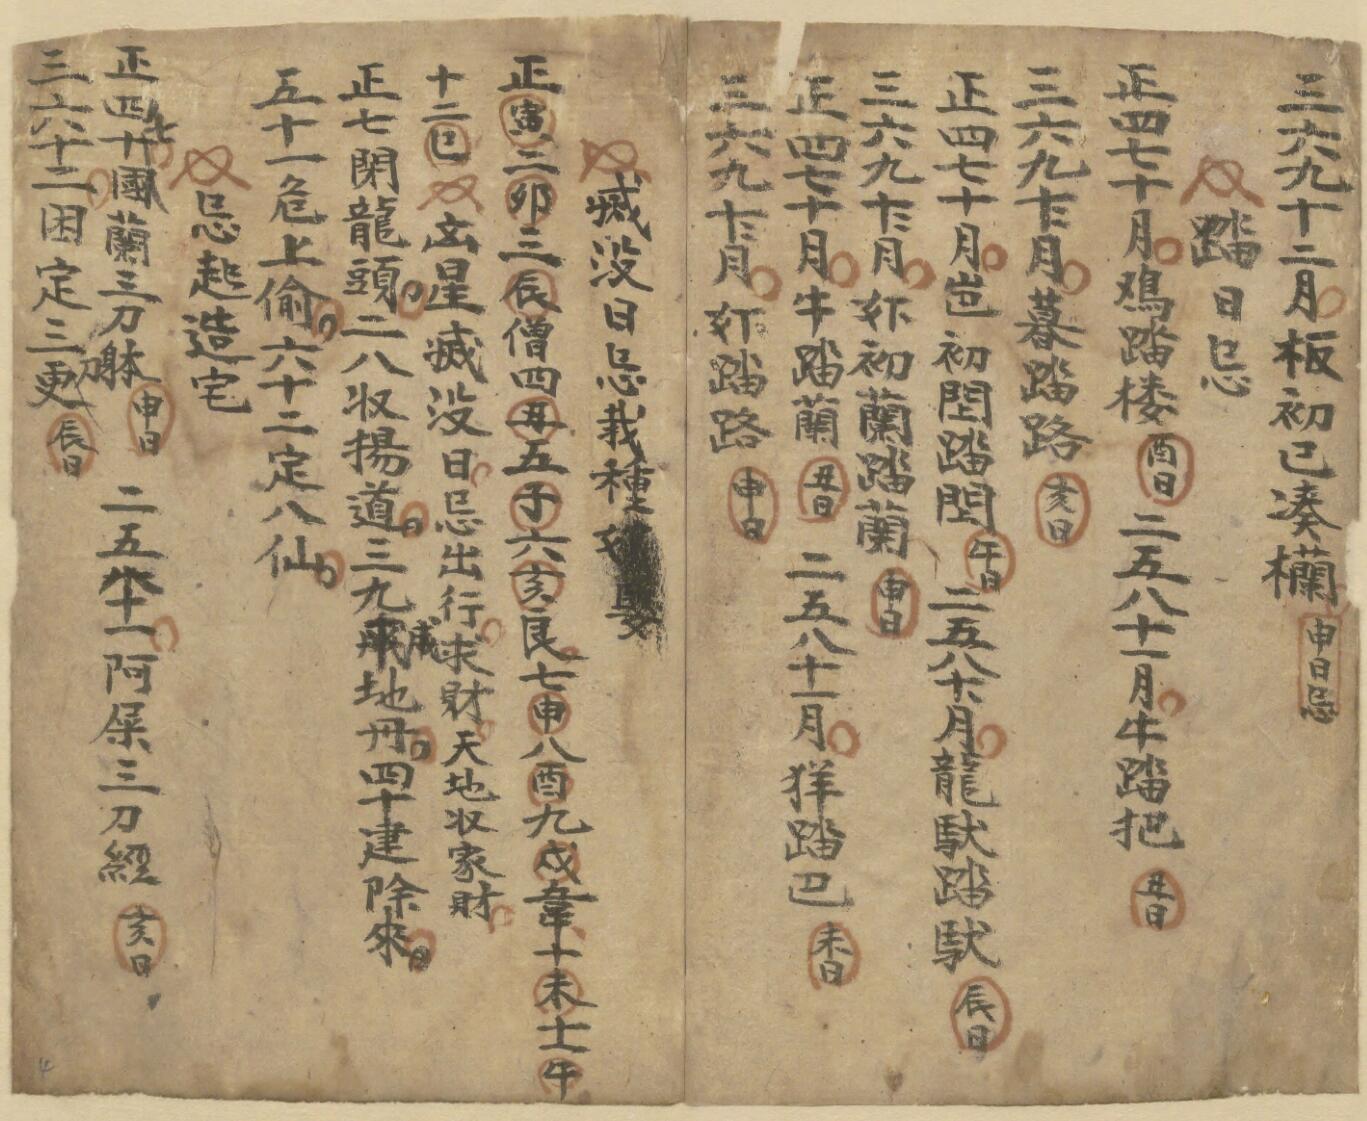 三六九十二月板初已凑欄申日忌
踏日忌
正四七十月鳮踏楼酉日二五八十一月牛踏把丑日
三六九十二月暮踏路亥日
正四七十月岜初閏踏閏午日二五八十一月龍馱踏馱辰日
三六九十二月奸初蘭踏蘭申日
正四七十月牛踏蘭丑日二五八十一月羊踏巴未日
三六九十二月奸踏路申日
滅没日忌栽種娶
正寅二卯三辰僧四丑五子六亥良七申八酉九戌韋十未十一午
十二巳凶星滅没日忌出行求財天地收家財
正七閉龍頭二八收揚道三九成地丹四十建除來
五十一危上偷六十二定八仙
忌起造宅
正四七十國蘭三刀躰申日二五八十一阿屎三刀經亥日
三六十二困定三刀辰日